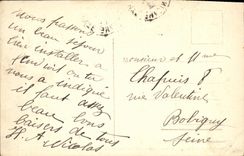 Nous passons
un beau séjour
être installer à
l'endroit on tu
nous a indiqué
il fait assez
beau bons
baisers de tous
Nicolas
Monsieur et Mme
Chapuis
rue Valentine
Bobigny
Seine